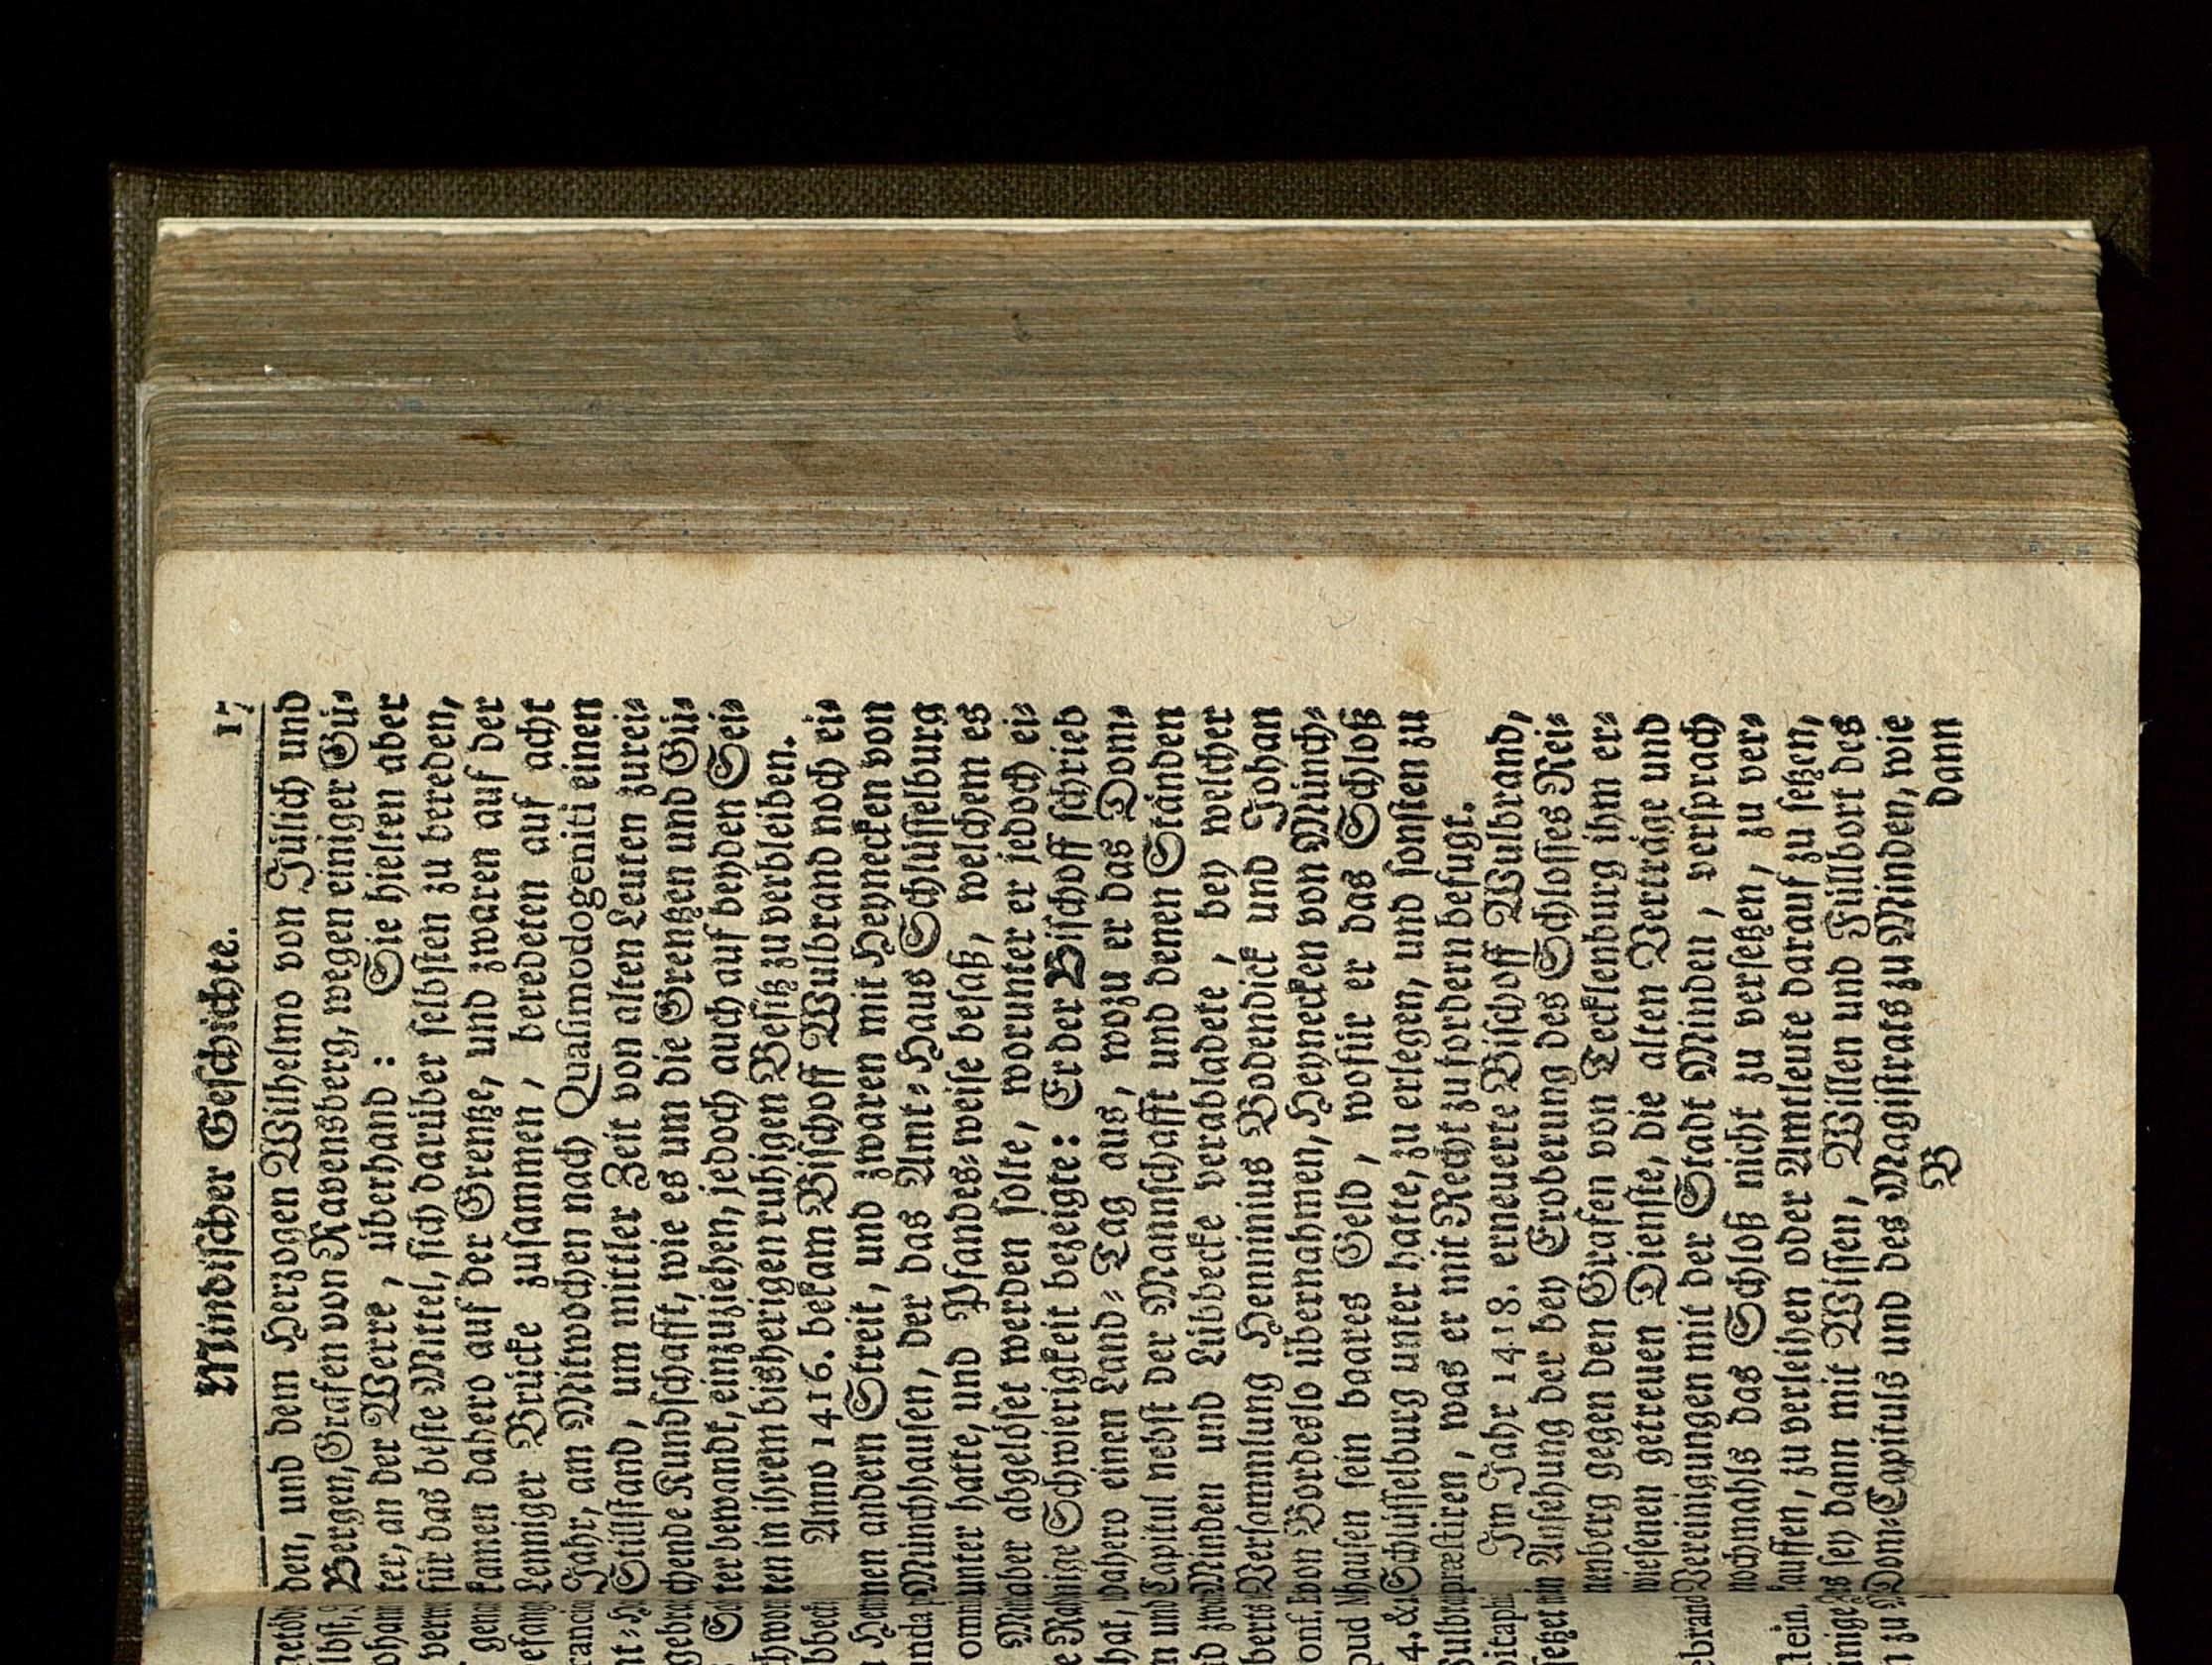 Mindischer Geschichte. 17
den, und dem Herzogen Wilhelmo von Jülich und
Bergen, Grafen von Ravensberg, wegen einiger Gü-
ter, an der Werre, überhand: Sie hielten aber
für das beste Mittel, sich darüber selbsten zu bereden,
kamen dahero auf der Grentze, und zwaren auf der
Lenniger Brücke zusammen, beredeten auf acht
Jahr, am Mitwochen nach Quasimodogeniti einen
Stillstand, um mittler Zeit von alten Leuten zurei-
chende Kundschafft, wie es um die Grentzen und Gü-
ter bewandt, einzuziehen, jedoch auch auf beyden Sei-
ten in ihrem bisherigen ruhigen Besitz zu verbleiben.
Anno 1416. bekam Bischoff Wulbrand noch ei-
nen andern Streit, und zwaren mit Heynecken von
Münchhausen, der das Amt-Haus Schlüsselburg
unter hatte, und Pfandes-weise besaß, welchem es
aber abgelöset werden solte, worunter er jedoch ei-
nige Schwierigkeit bezeigte: Er der Bischoff schrieb
dahero einen Land-Tag aus, wozu er das Dom-
Capitul nebst der Mannschafft und denen Ständen
Minden und Lübbecke verabladete, bey welcher
Versammlung Henninius Bodendick und Johan
von Bordeslo übernahmen, Heynecken von Münch-
hausen sein baares Geld, wofür er das Schloß
Schlüsselburg unter hatte, zu erlegen, und sonsten zu
præstiren, was er mit Recht zu fordern befugt.
Im Jahr 1418. erneuerte Bischoff Wulbrand,
in Ansehung der bey Eroberung des Schlosses Rei-
nenberg gegen den Grafen von Tecklenburg ihm er-
wiesenen getreuen Dienste, die alten Verträge und
Vereinigungen mit der Stadt Minden, versprach
nochmahls das Schloß nicht zu versetzen, zu ver-
kauffen, zu verleihen oder Amtleute darauf zu setzen,
es sey dann mit Wissen, Willen und Füllbort des
Dom-Capituls und des Magistrats zu Minden, wie
B dann